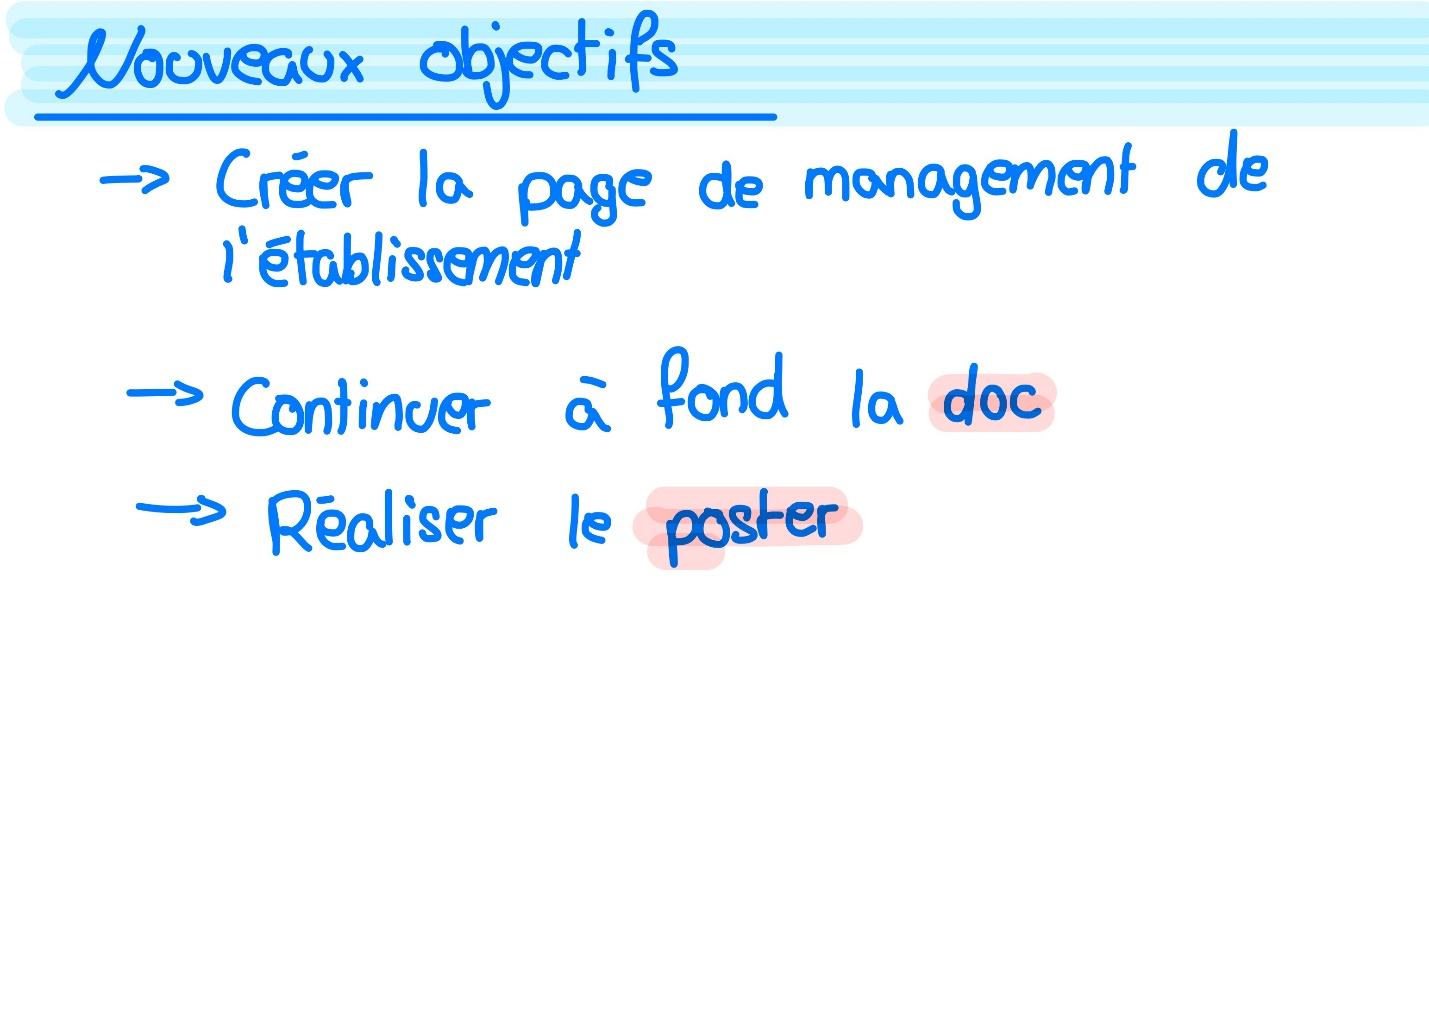 Nouveaux objectifs
→ Créer la page de management de
l'établissement
→ Continuer à fond la doc
→ Réaliser le poster